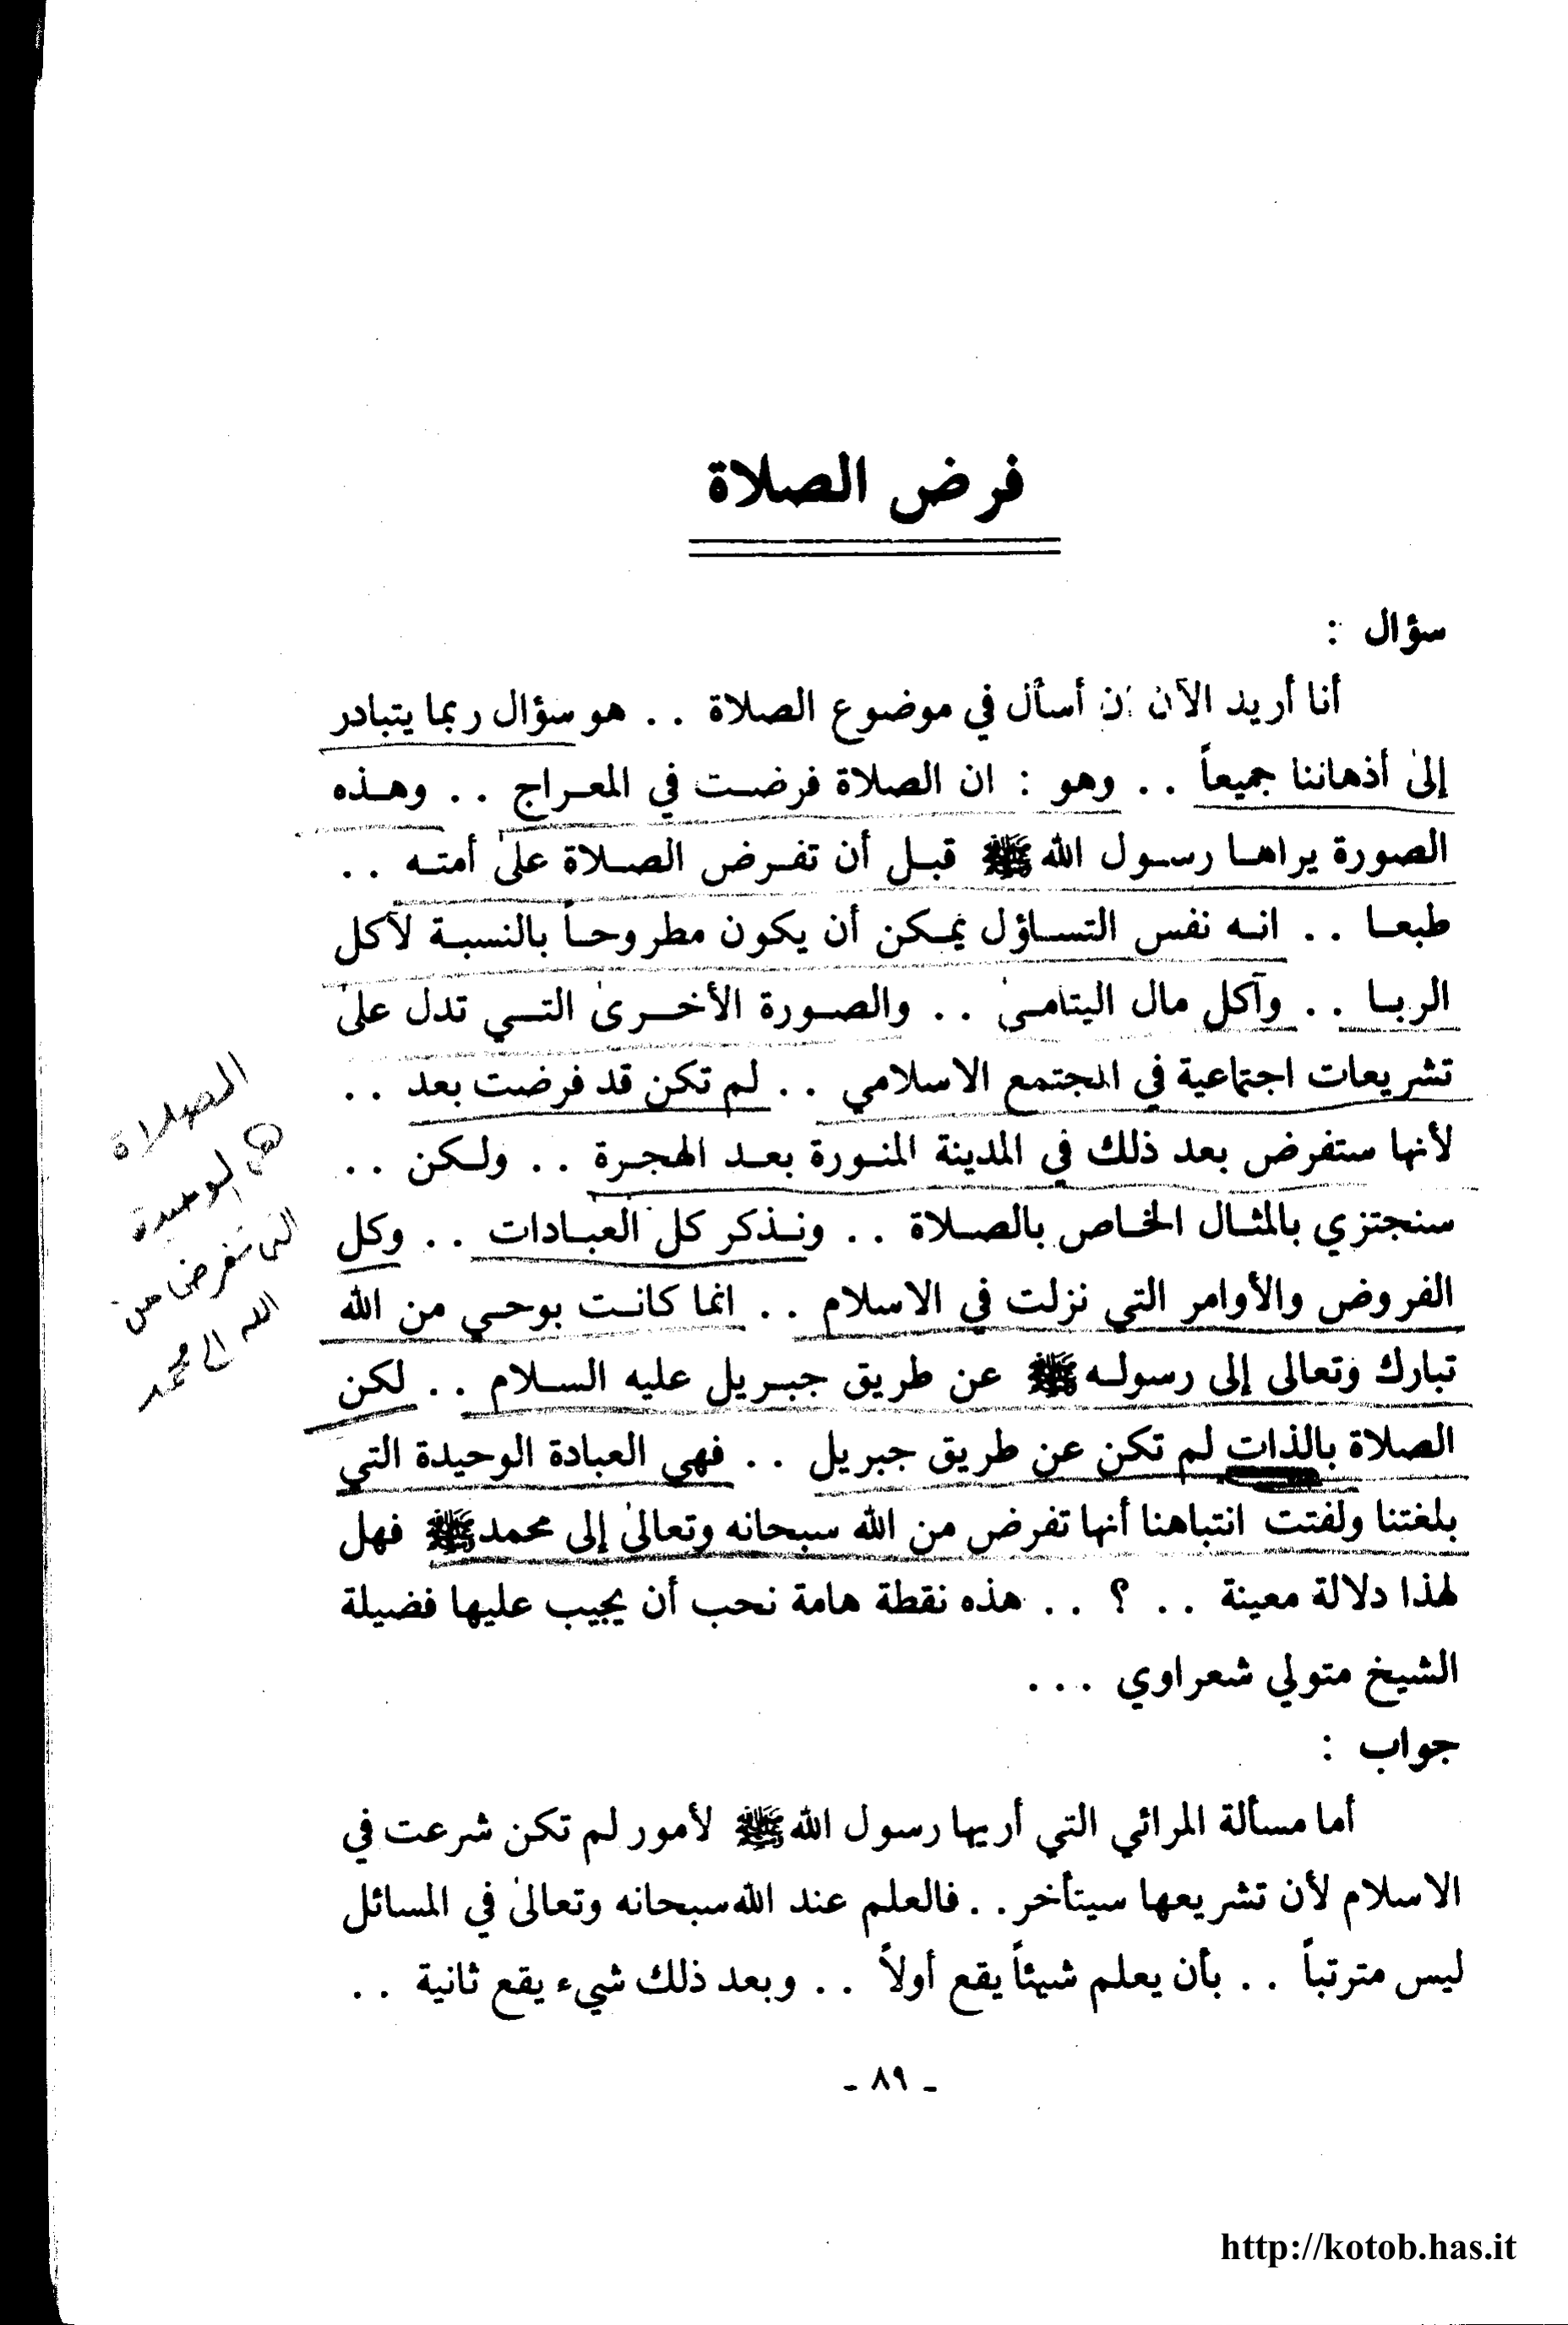 فرض الصلاة
سؤال :
أنا أريد الآن أن أسأل في موضوع الصلاة . . هو سؤال ربما يتبادر
إلىٰ أذهاننا جميعاً . . وهو : ان الصلاة فرضت في المعراج . . وهذه
الصورة يراها رسول الله ﷺ قبل أن تفرض الصلاة علىٰ أمته . .
طبعا . . انه نفس التساؤل يمكن أن يكون مطروحاً بالنسبة لآكل
الربا . . وآكل مال اليتامىٰ . . والصورة الأخرىٰ التي تدل علىٰ
تشريعات اجتماعية في المجتمع الاسلامي . . لم تكن قد فرضت بعد . .
لأنها ستفرض بعد ذلك في المدينة المنورة بعد الهجرة . . ولكن . .
سنجتزي بالمثال الخاص بالصلاة . . ونذكر كل العبادات . . وكل
الفروض والأوامر التي نزلت في الاسلام . . انما كانت بوحي من الله
تبارك وتعالى إلى رسوله ﷺ عن طريق جبريل عليه السلام . . لكن
الصلاة بالذات لم تكن عن طريق جبريل . . فهي العبادة الوحيدة التي
بلغتنا ولفتت انتباهنا أنها تفرض من الله سبحانه وتعالىٰ إلى محمد ﷺ فهل
لهذا دلالة معينة . . ؟ . . هذه نقطة هامة نحب أن يجيب عليها فضيلة
الشيخ متولي شعراوي . . .
جواب :
أما مسألة المرائي التي أريها رسول الله ﷺ لأمور لم تكن شرعت في
الاسلام لأن تشريعها سيتأخر . . فالعلم عند الله سبحانه وتعالىٰ في المسائل
ليس مترتباً . . بأن يعلم شيئاً يقع أولاً . . وبعد ذلك شيء يقع ثانية . .
الصلاة
هى الوحيدة
التى تفرض من
الله الى محمد
ـ ٨٩ ـ
http://kotob.has.it